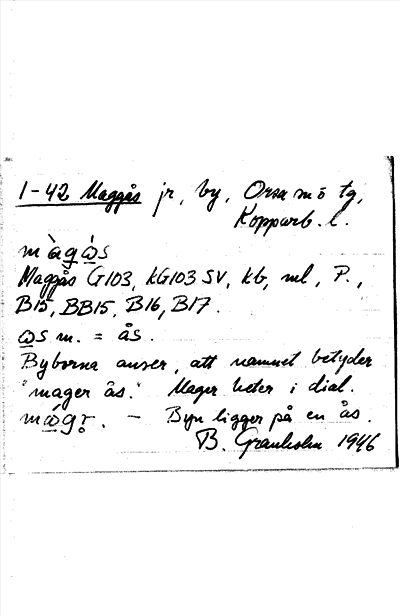 1-42 Maggås jr, by, Orsa m o tg,
Kopparb. l.
màgàs
Maggås G103, kG103 SV, kb, ml, P.,
B15, BB15, B16, B17.
ås m. = ås.
Byborna anser, att namnet betyder
"mager ås." Mager heter i dial.
mágr. – Byn ligger på en ås.
B. Granholm 1946